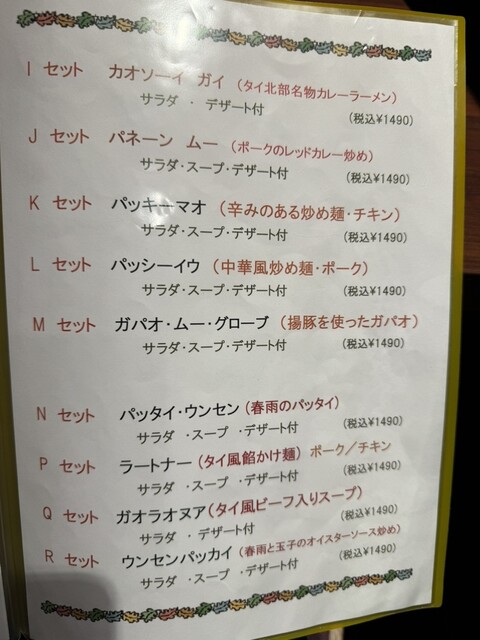 I セット カオソーイ ガイ (タイ北部名物カレーラーメン)
サラダ ・ デザート付 (税込¥1490)
J セット パネーン ムー (ポークのレッドカレー炒め)
サラダ・スープ・デザート付 (税込¥1490)
K セット パッキーマオ (辛みのある炒め麺・チキン)
サラダ・スープ・デザート付 (税込¥1490)
L セット パッシーイウ (中華風炒め麺・ポーク)
サラダ・スープ・デザート付 (税込¥1490)
M セット ガパオ・ムー・グローブ (揚豚を使ったガパオ)
サラダ・スープ・デザート付 (税込¥1490)
N セット パッタイ・ウンセン (春雨のパッタイ)
サラダ ・スープ ・デザート付 (税込¥1490)
P セット ラートナー (タイ風餡かけ麺) ポーク／チキン
サラダ ・スープ ・デザート付 (税込¥1490)
Q セット ガオラオヌア (タイ風ビーフ入りスープ)
サラダ ・デザート付 (税込¥1490)
R セット ウンセンパッカイ (春雨と玉子のオイスターソース炒め)
サラダ ・スープ ・デザート付 (税込¥1490)